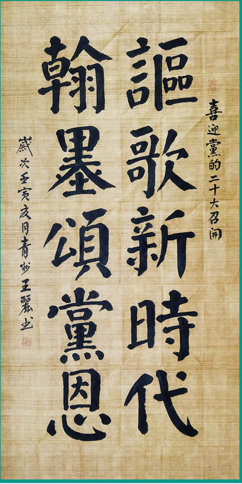 喜迎黨的二十大召開
謳歌新時代
翰墨頌黨恩
歲次壬寅亥月青州王麗书